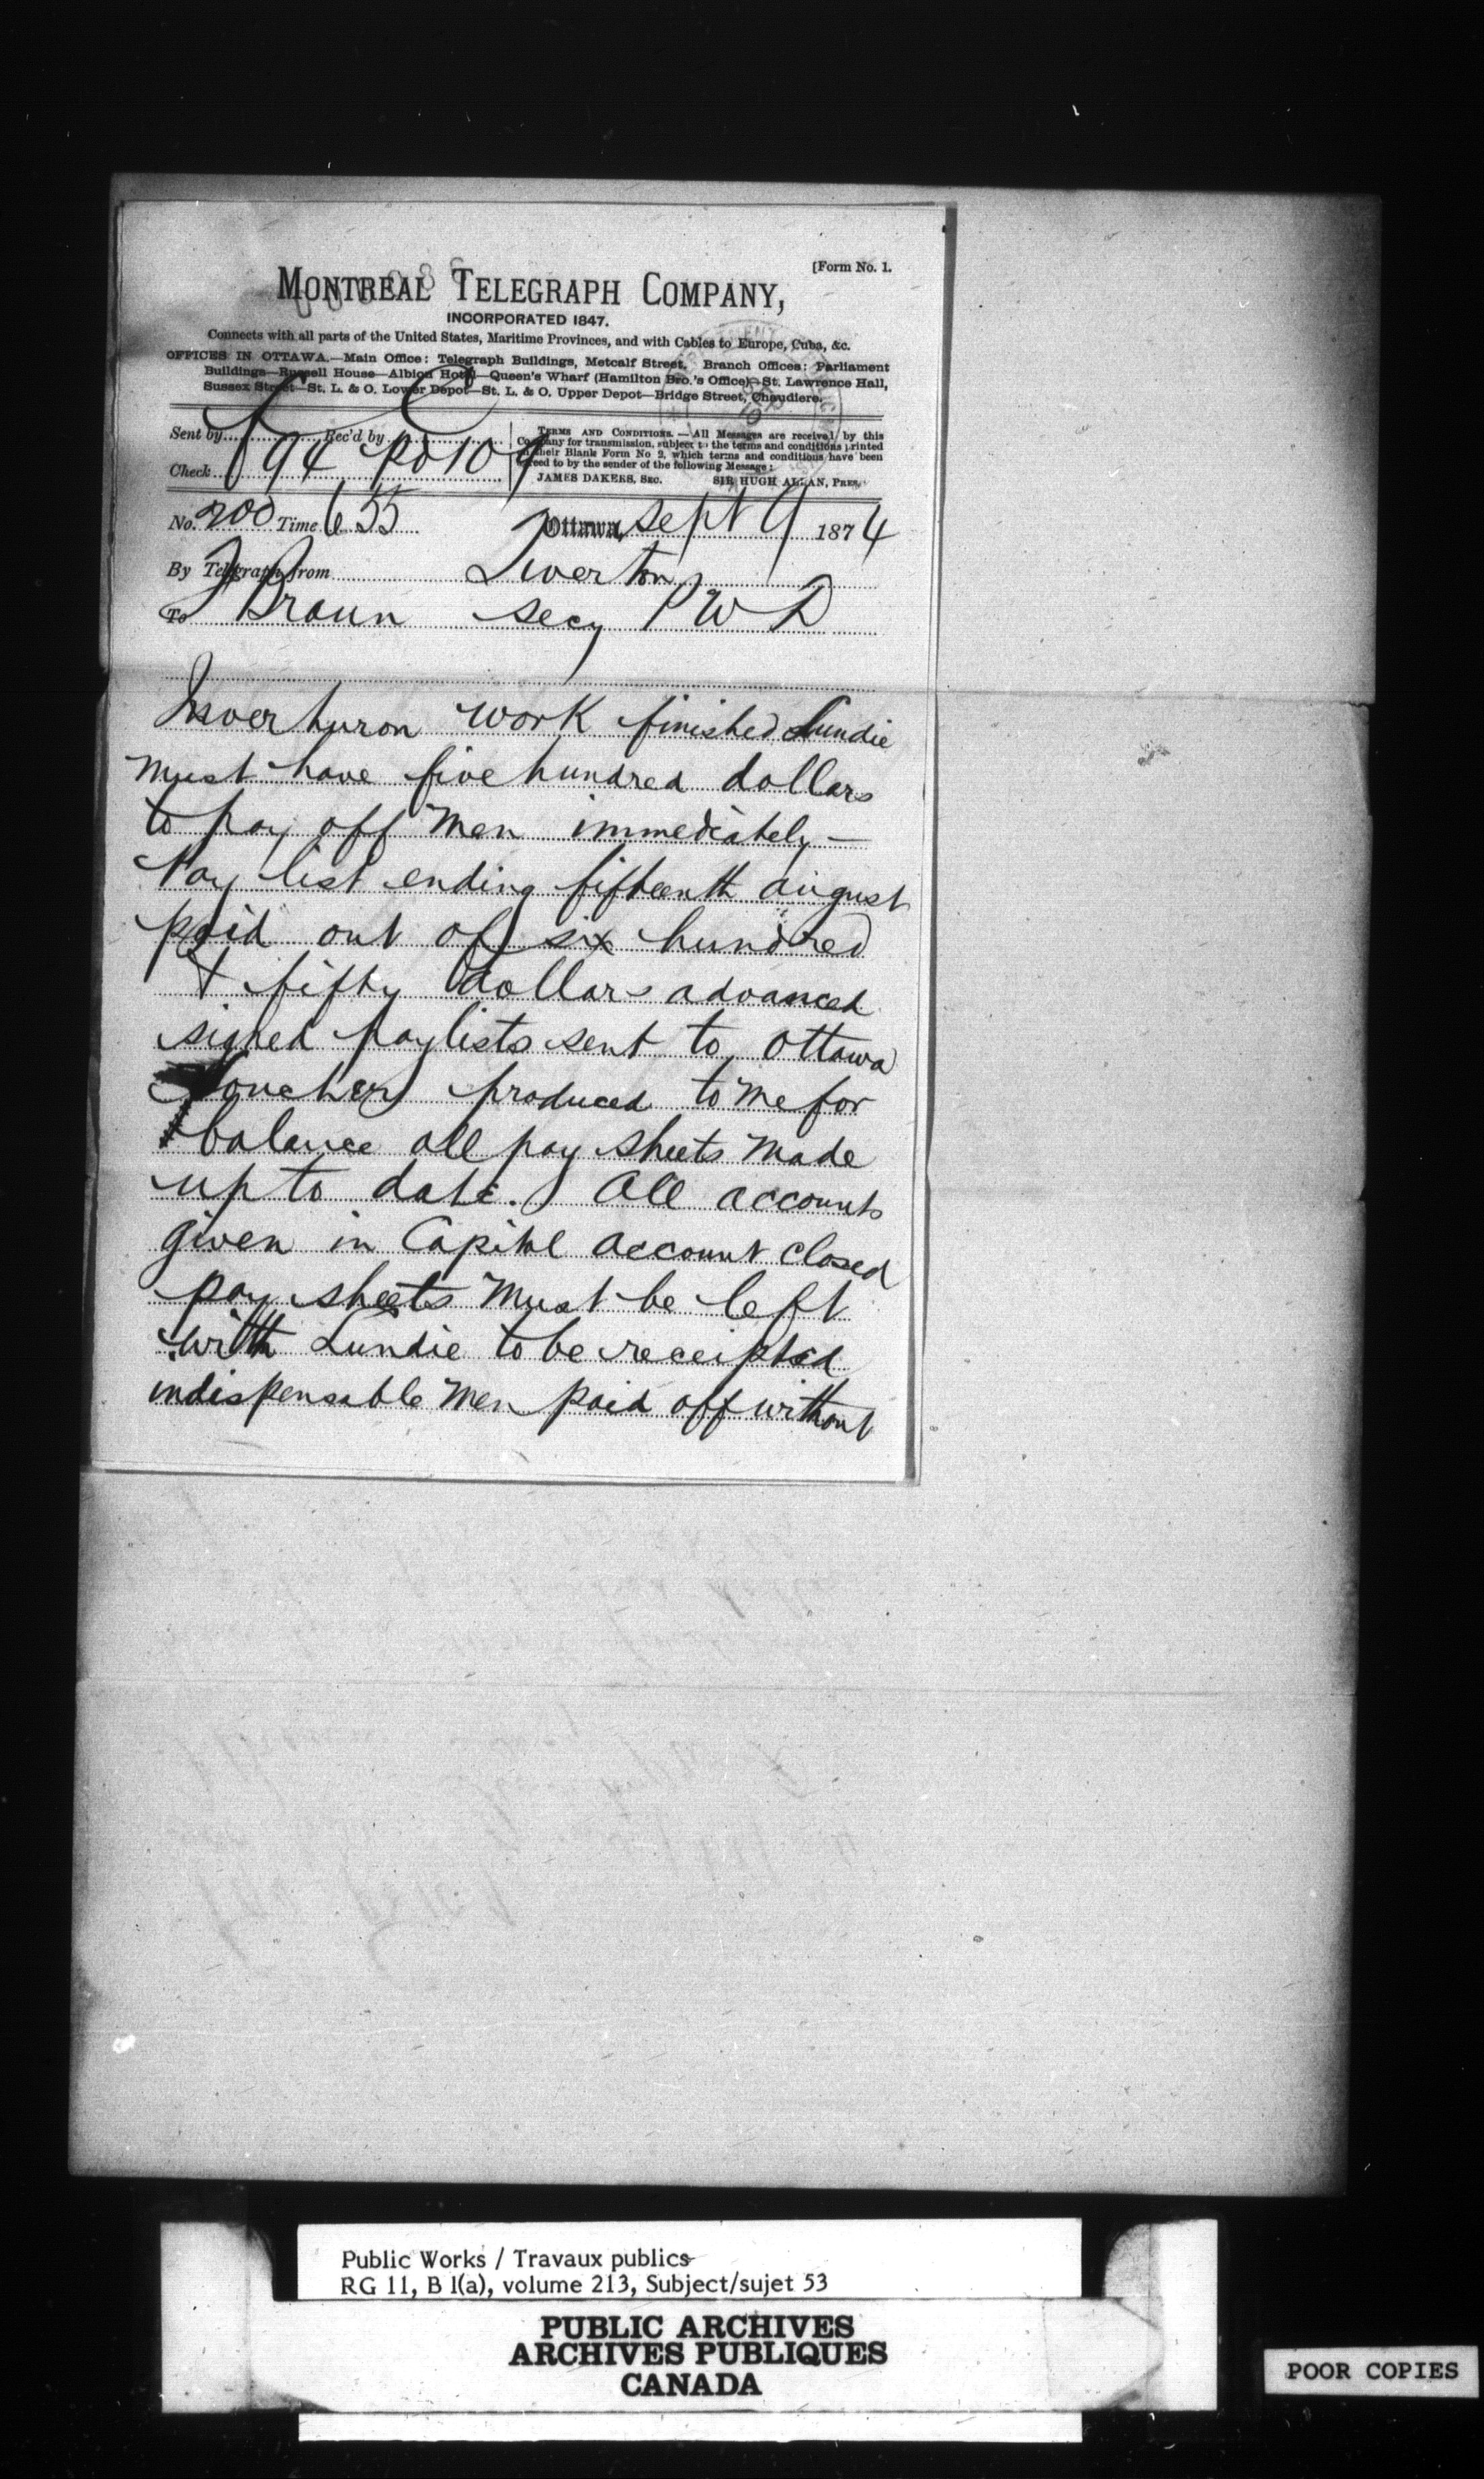 [Form No. 1.
MONTREAL TELEGRAPH COMPANY,
INCORPORATED 1847.
Connects with all parts of the United States, Maritime Provinces, and with Cables to Europe, Cuba, &c.
OFFICES IN OTTAWA.—Main Office: Telegraph Buildings, Metcalf Street. Branch Offices: Parliament
Buildings—Russell House—Albion Hotel—Queen's Wharf (Hamilton Bro.'s Office)—St. Lawrence Hall,
Sussex Street—St. L. & O. Lower Depot—St. L. & O. Upper Depot—Bridge Street, Chaudiere.
Sent by Rec'd by
Check 94 pd 109
TERMS AND CONDITIONS.—All Messages are received by this
Company for transmission, subject to the terms and conditions printed
on their Blank Form No 2, which terms and conditions have been
agreed to by the sender of the following Message:
JAMES DAKERS, SEC. SIR HUGH ALLAN, PRES.
No. 200 Time 655 Ottawa, Sept 9 1874
By Telegraph from Tiverton
To F Braun Secy P W D
Inverhuron work finished Lundie
must have five hundred dollars
to pay off men immediately—
Pay list ending fifteenth august
paid out of six hundred
& fifty dollars advanced
signed paylists sent to Ottawa
Voucher produced to me for
balance all pay sheets made
up to date. All accounts
given in Capital account closed
pay sheets must be left
with Lundie to be receipted
indispensable men paid off without
Public Works / Travaux publics
RG 11, B 1(a), volume 213, Subject/sujet 53
PUBLIC ARCHIVES
ARCHIVES PUBLIQUES
CANADA
POOR COPIES